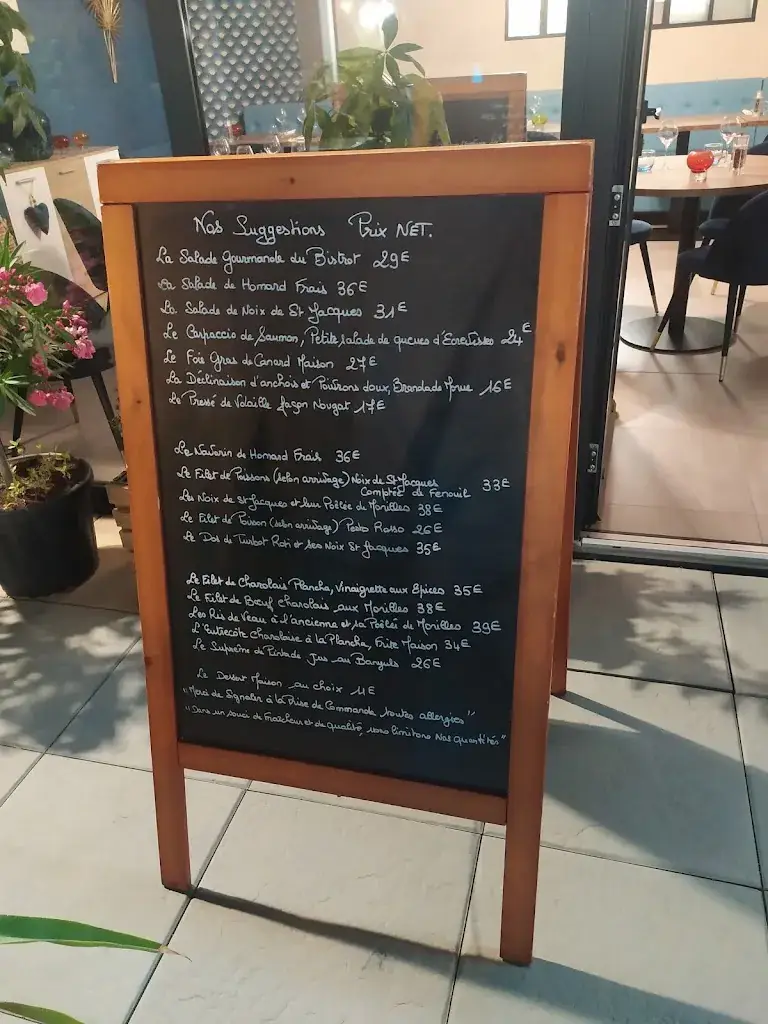 Nos Suggestions Prix NET.
La Salade Gourmande du Bistrot 29€
La Salade de Homard Frais 36€
La Salade de Noix de St Jacques 31€
Le Carpaccio de Saumon, Petite salade de queues d'Ecrevisses 24€
Le Foie Gras de Canard Maison 27€
La Déclinaison d'anchois et Poivrons doux, Brandade Morue 16€
Le Pressé de Volaille façon Nougat 17€
Le Navarin de Homard Frais 36€
Le Filet de Poissons (selon arrivage) Noix de St Jacques
Comptée de Fenouil 33€
Les Noix de St Jacques et leur Poêlée de Morilles 38€
Le Filet de Poisson (selon arrivage) Pesto Rosso 26€
Le Dos de Turbot Roti et ses Noix St Jacques 35€
Le Filet de Charolais Plancha, Vinaigrette aux Epices 35€
Le Filet de Bœuf Charolais aux Morilles 38€
Les Ris de Veau à l'ancienne et sa Poêlée de Morilles 39€
L'Entrecôte Charolaise à la Plancha, Frite Maison 34€
Le Suprême de Pintade Jus au Banyuls 26€
Le Dessert Maison au choix 11€
"Merci de Signaler à la Prise de Commande toutes allergies"
"Dans un souci de Fraîcheur et de qualité, nous limitons Nos quantités"